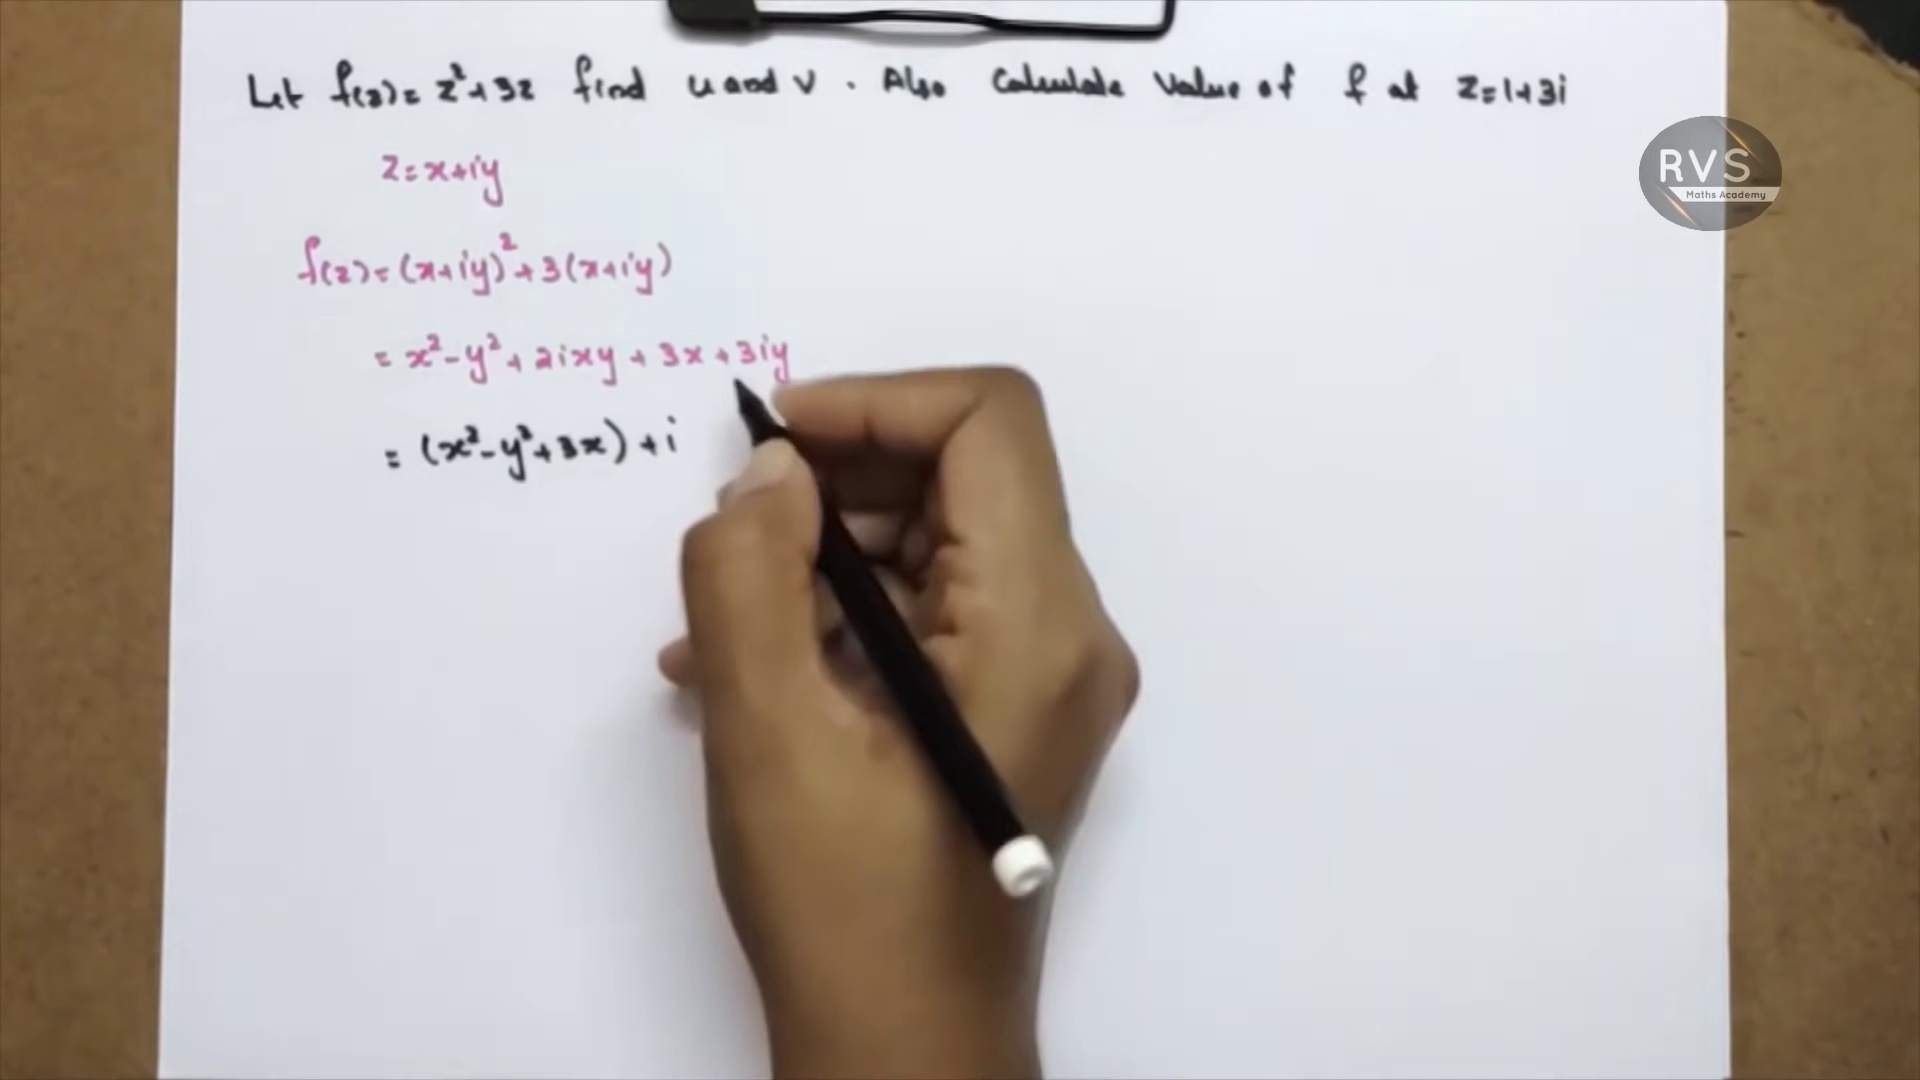 Let f(z) = z²+3z find u and v . Also Calculate Value of f at z=1+3i
RVS
Maths Academy
z=x+iy
f(z)=(x+iy)²+3(x+iy)
= x²-y²+2ixy+3x+3iy
= (x²-y²+3x)+i